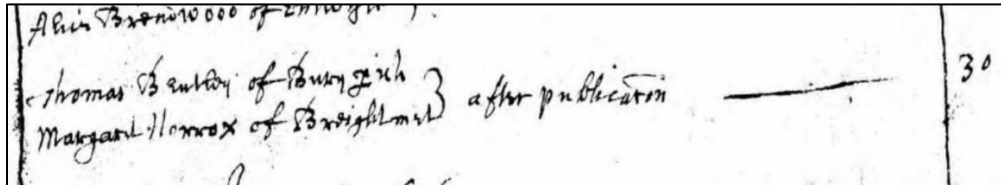 Alis Brendwood of
Thomas Bentley of Bury pish
Margaret Horrox of Breightmet } after publicaton — 30